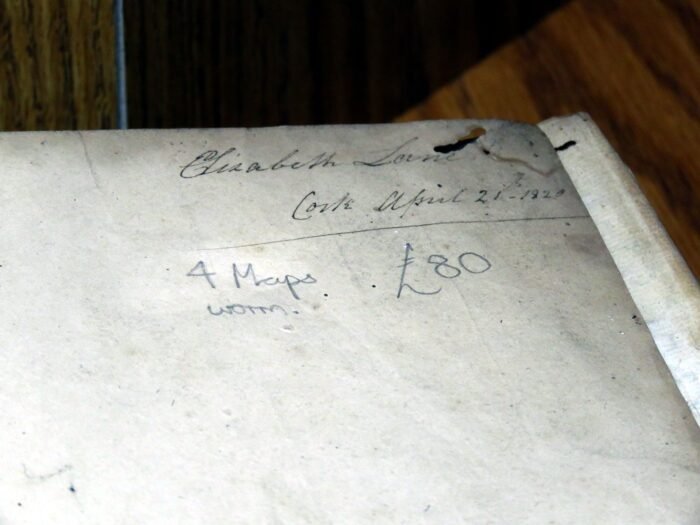 Elisabeth Lane
Cork April 21st - 1820
4 Maps £80
worm.